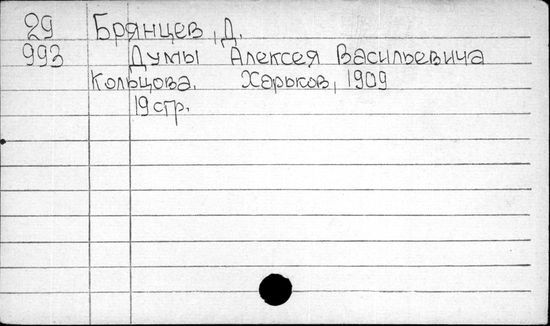 29 Брянцев, Д.
993 Думы Алексея Васильевича
Кольцова. Харьков, 1909
19 стр.